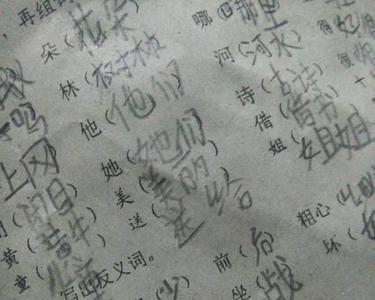 再组词
朵(花朵)
哪(哪里)
林(树林)
河(河水)
他(他们)
诗(古诗)
借(借书)
她(她们)
姐(姐姐)
美(美丽)
送(送给)
吗
上网
黄(黄牛)
童(儿童
写出反义词。
前(后)
粗心(
坏(
少)
坐(战